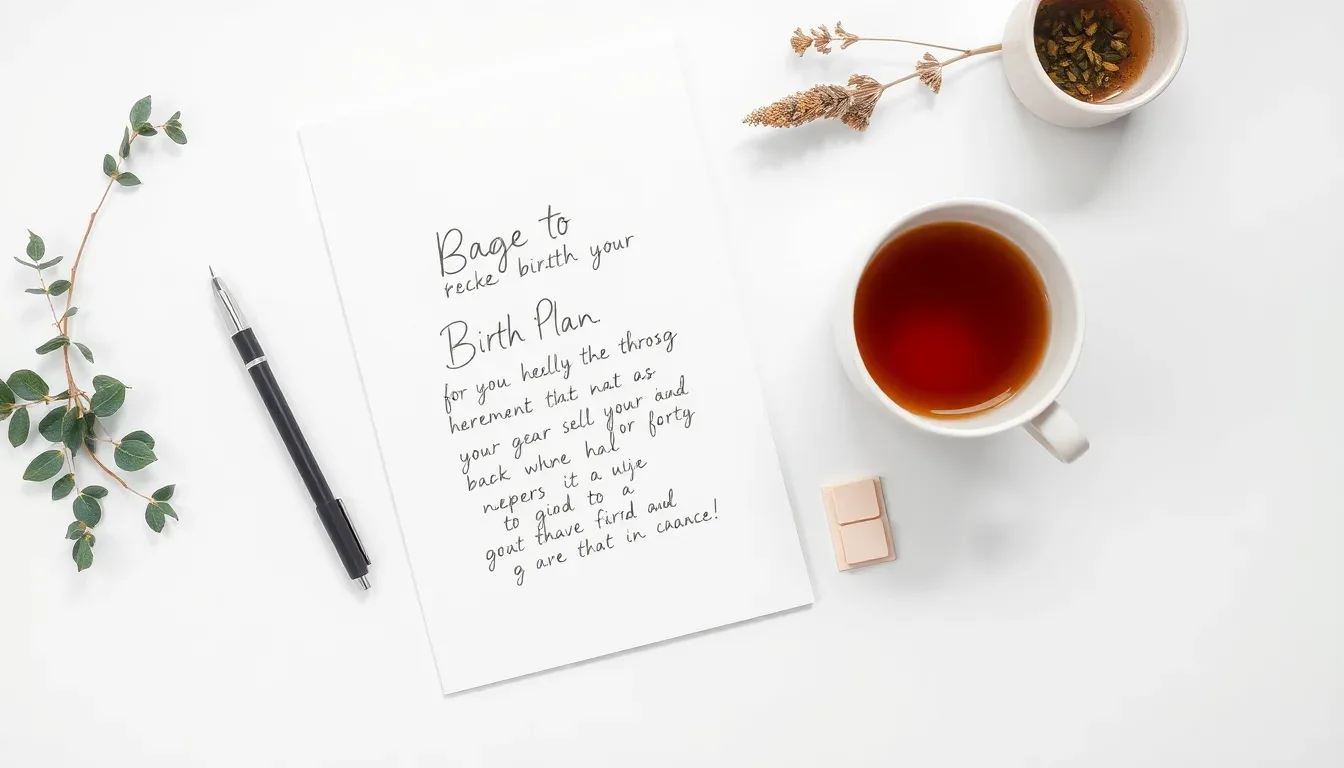 Bage to
recke birtth your
Birth Plan
for you helly the throsg
herement that nat as
your gear sell your and
back whre hal or forty
nepers it a
to giod to a
gout thave fird and
g are that in caance!